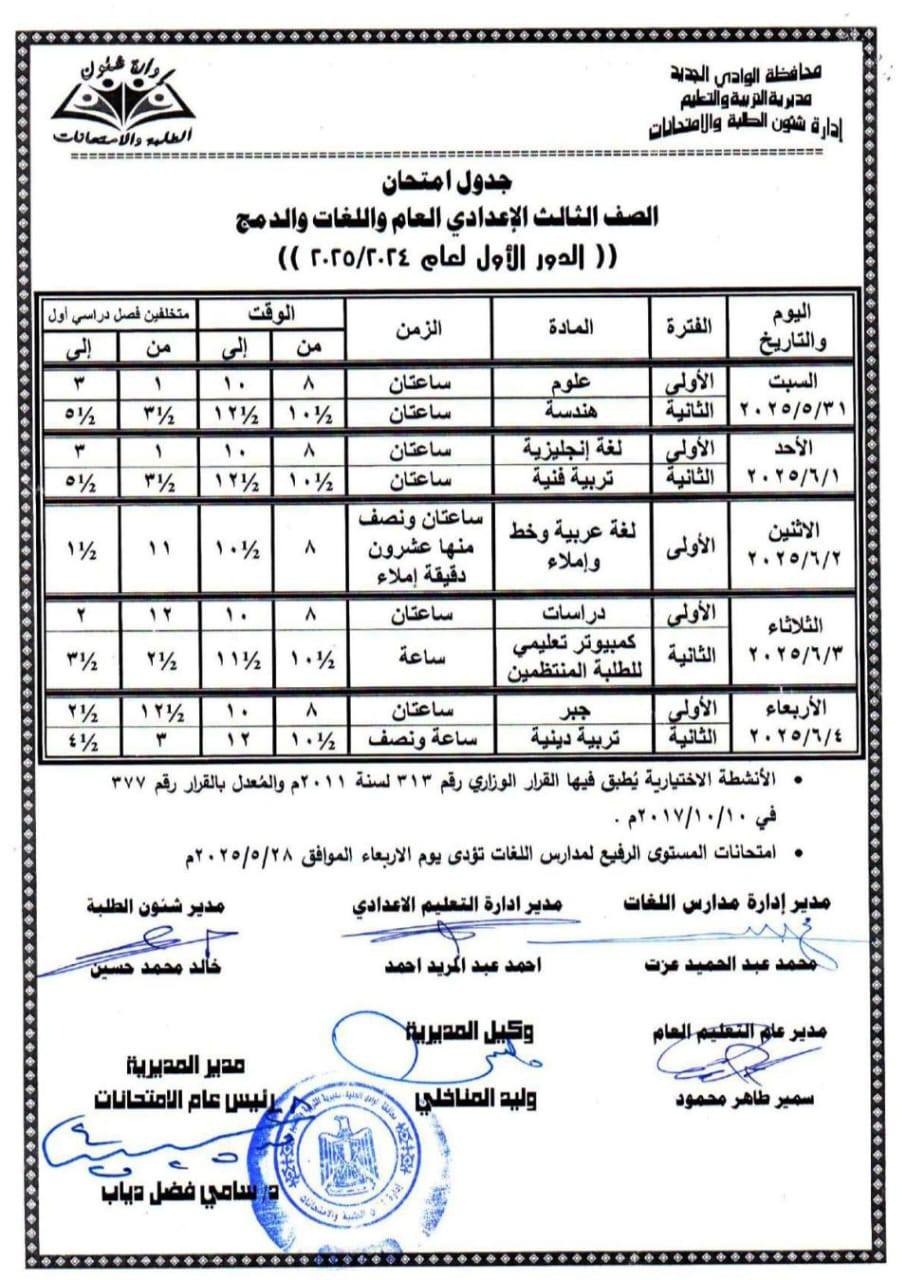 محافظة الوادي الجديد
مديرية التربية والتعليم
إدارة شئون الطلبة والامتحانات
إدارة شئون
الطلبه والامتحانات
جدول امتحان
الصف الثالث الإعدادي العام واللغات والدمج
(( الدور الأول لعام ٢٠٢٥/٢٠٢٤ ))
اليوم والتاريخ | الفترة | المادة | الزمن | الوقت | متخلفين فصل دراسي أول
من | إلى | من | إلى
السبت ٢٠٢٥/٥/٣١ | الأولى | علوم | ساعتان | ٨ | ١٠ | ١ | ٣
الثانية | هندسة | ساعتان | ١٠½ | ١٢½ | ٣½ | ٥½
الأحد ٢٠٢٥/٦/١ | الأولى | لغة إنجليزية | ساعتان | ٨ | ١٠ | ١ | ٣
الثانية | تربية فنية | ساعتان | ١٠½ | ١٢½ | ٣½ | ٥½
الاثنين ٢٠٢٥/٦/٢ | الأولى | لغة عربية وخط وإملاء | ساعتان ونصف منها عشرون دقيقة إملاء | ٨ | ١٠½ | ١١ | ١½
الثلاثاء ٢٠٢٥/٦/٣ | الأولى | دراسات | ساعتان | ٨ | ١٠ | ١٢ | ٢
الثانية | كمبيوتر تعليمي للطلبة المنتظمين | ساعة | ١٠½ | ١١½ | ٢½ | ٣½
الأربعاء ٢٠٢٥/٦/٤ | الأولى | جبر | ساعتان | ٨ | ١٠ | ١٢½ | ٢½
الثانية | تربية دينية | ساعة ونصف | ١٠½ | ١٢ | ٣ | ٤½
• الأنشطة الاختيارية يُطبق فيها القرار الوزاري رقم ٣١٣ لسنة ٢٠١١م والمُعدل بالقرار رقم ٣٧٧
في ٢٠١٧/١٠/١٠م .
• امتحانات المستوى الرفيع لمدارس اللغات تؤدى يوم الاربعاء الموافق ٢٠٢٥/٥/٢٨م
مدير إدارة مدارس اللغات | مدير ادارة التعليم الاعدادي | مدير شئون الطلبة
محمد عبد الحميد عزت | احمد عبد المريد احمد | خالد محمد حسين
مدير عام التعليم العام | وكيل المديرية | مدير المديرية
رئيس عام الامتحانات
سمير طاهر محمود | وليد المناخلي
د/ سامي فضل دياب